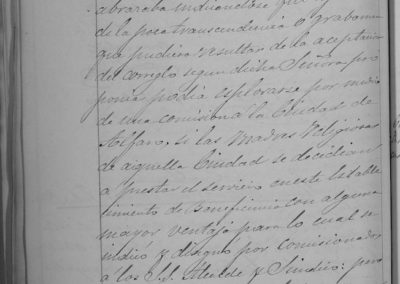 abrazaba indicandose que
de la poca transcendencia o grabamen
que pudiera resultar de la aceptacion
del arreglo segun dicha Señora pro
ponia podia esplorarse por medio
de una comision a la Ciudad de
Alfaro, si las Madres Religiosas
de aquella Ciudad se decidian
a prestar el servicio en este Estable
cimiento de Beneficencia con alguna
mayor ventaja para lo cual se
indicó y designo por comisionados
á los S.S. Alcalde y Sindico: pero